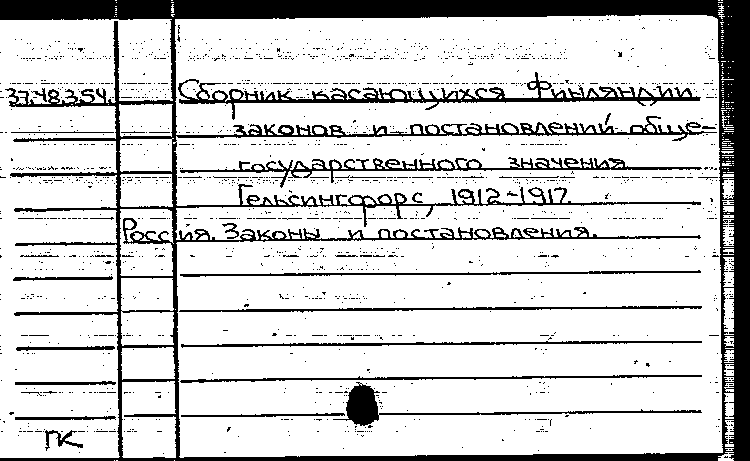 37.48.3.54. Сборник касающихся Финляндии
законов и постановлений обще-
государственного значения
Гельсингфорс, 1912-1917
Россия. Законы и постановления.
ПК